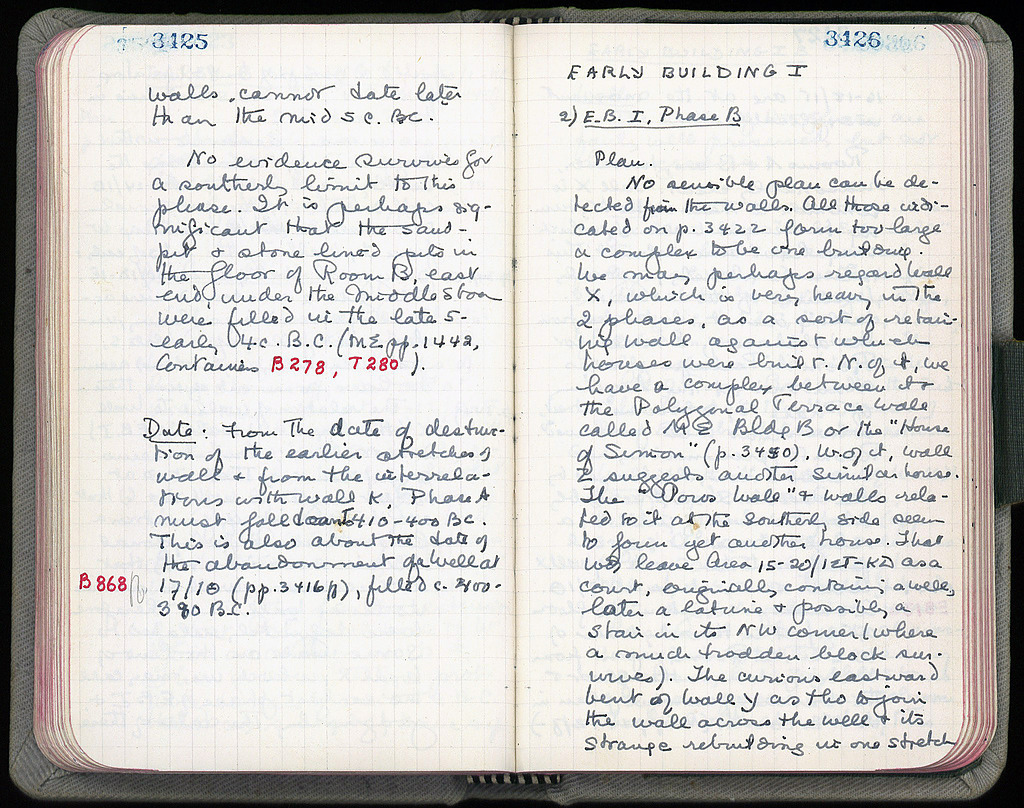 3425
walls, cannot date later
than the mid 5 c. BC.
No evidence survives for
a southerly limit to this
phase. It is perhaps sig-
nificant that the sand-
pit & stone lined pits in
the floor of Room B, east
end, under the Middle Stoa
were filled in the late 5-
early 4 c. B.C. (ME pp. 1442,
Containers B278, T280).
Date: From the date of destruc-
tion of the earlier stretches of
wall & from the interrela-
tions with wall K, Phase A
must fall 410-400 BC.
This is also about the date of
the abandonment of well at
B868 17/10 (pp. 3416f), filled c. 400-
390 B.C.
3426
EARLY BUILDING I
2) E.B. I, Phase B
Plan.
No sensible plan can be de-
tected from the walls. All those indi-
cated on p. 3422 form too large
a complex to be one building.
We may perhaps regard wall
X, which is very heavy in the
2 phases, as a sort of retain-
ing wall against which
houses were built. N. of it, we
have a complex between it &
the Polygonal Terrace Wall
called ME Bldg B or the "House
of Simon" (p. 3430), W. of it, wall
Z suggests another similar house.
The "Poros Wall" & walls rela-
ted to it at the southerly side seem
to form yet another house. That
leave Area 15-20/ as a
court, originally containing a well,
later a latrine & possibly a
stair in its NW corner (where
a much trodden block sur-
vives). The curious eastward
bent of wall Y as tho to join
the wall across the well & its
strange rebuilding in one stretch